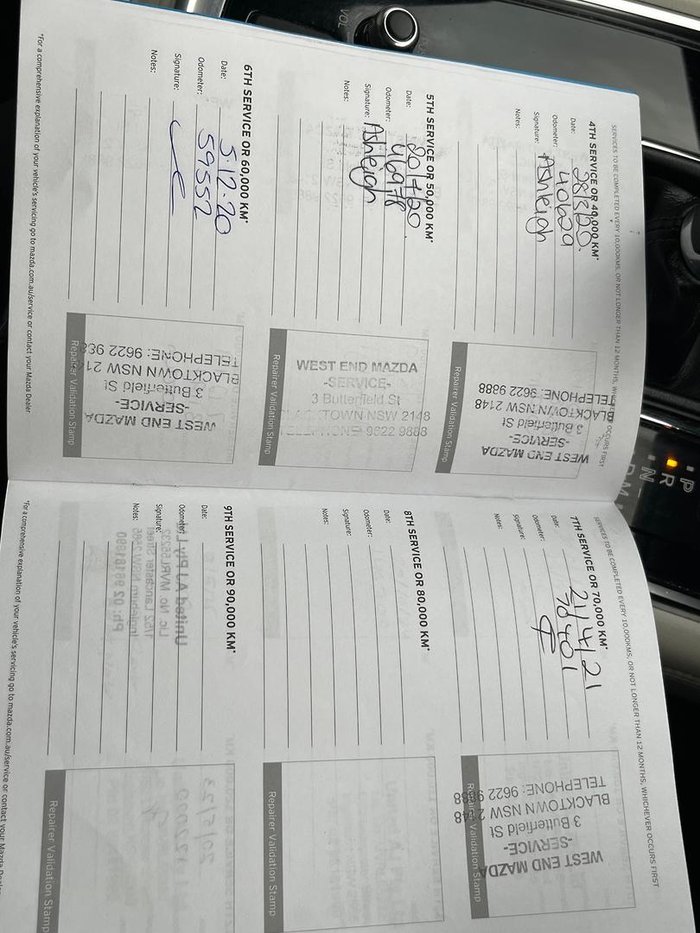 SERVICES TO BE COMPLETED EVERY 10,000KMS, OR NOT LONGER THAN 12 MONTHS, WHICHEVER OCCURS FIRST
4TH SERVICE OR 40,000 KM*
Date:
Odometer: 40629
Signature: Ashleigh
Notes:
WEST END MAZDA
-SERVICE-
3 Butterfield St
BLACKTOWN NSW 2148
TELEPHONE: 9622 9888
Repairer Validation Stamp
5TH SERVICE OR 50,000 KM*
Date: 20/7/20
Odometer: 46978
Signature: Ashleigh
Notes:
WEST END MAZDA
-SERVICE-
3 Butterfield St
BLACKTOWN NSW 2148
TELEPHONE: 9622 9888
Repairer Validation Stamp
6TH SERVICE OR 60,000 KM*
Date: 5.12.20
Odometer: 59552
Signature:
Notes:
WEST END MAZDA
-SERVICE-
3 Butterfield St
BLACKTOWN NSW 21
TELEPHONE: 9622 988
Repairer Validation Stamp
*For a comprehensive explanation of your vehicle's servicing go to mazda.com.au/service or contact your Mazda Dealer
SERVICES TO BE COMPLETED EVERY 10,000KMS, OR NOT LONGER THAN 12 MONTHS, WHICHEVER OCCURS FIRST
7TH SERVICE OR 70,000 KM*
Date: 21/4/21
Odometer: 70401
Signature:
Notes:
WEST END MAZDA
-SERVICE-
3 Butterfield St
BLACKTOWN NSW 2148
TELEPHONE: 9622 9888
Repairer Validation Stamp
8TH SERVICE OR 80,000 KM*
Date:
Odometer:
Signature:
Notes:
Repairer Validation Stamp
9TH SERVICE OR 90,000 KM*
Date:
Odometer:
Signature:
Notes:
Repairer Validation Stamp
*For a comprehensive explanation of your vehicle's servicing go to mazda.com.au/service or contact your Mazda
VOL
P
R
N